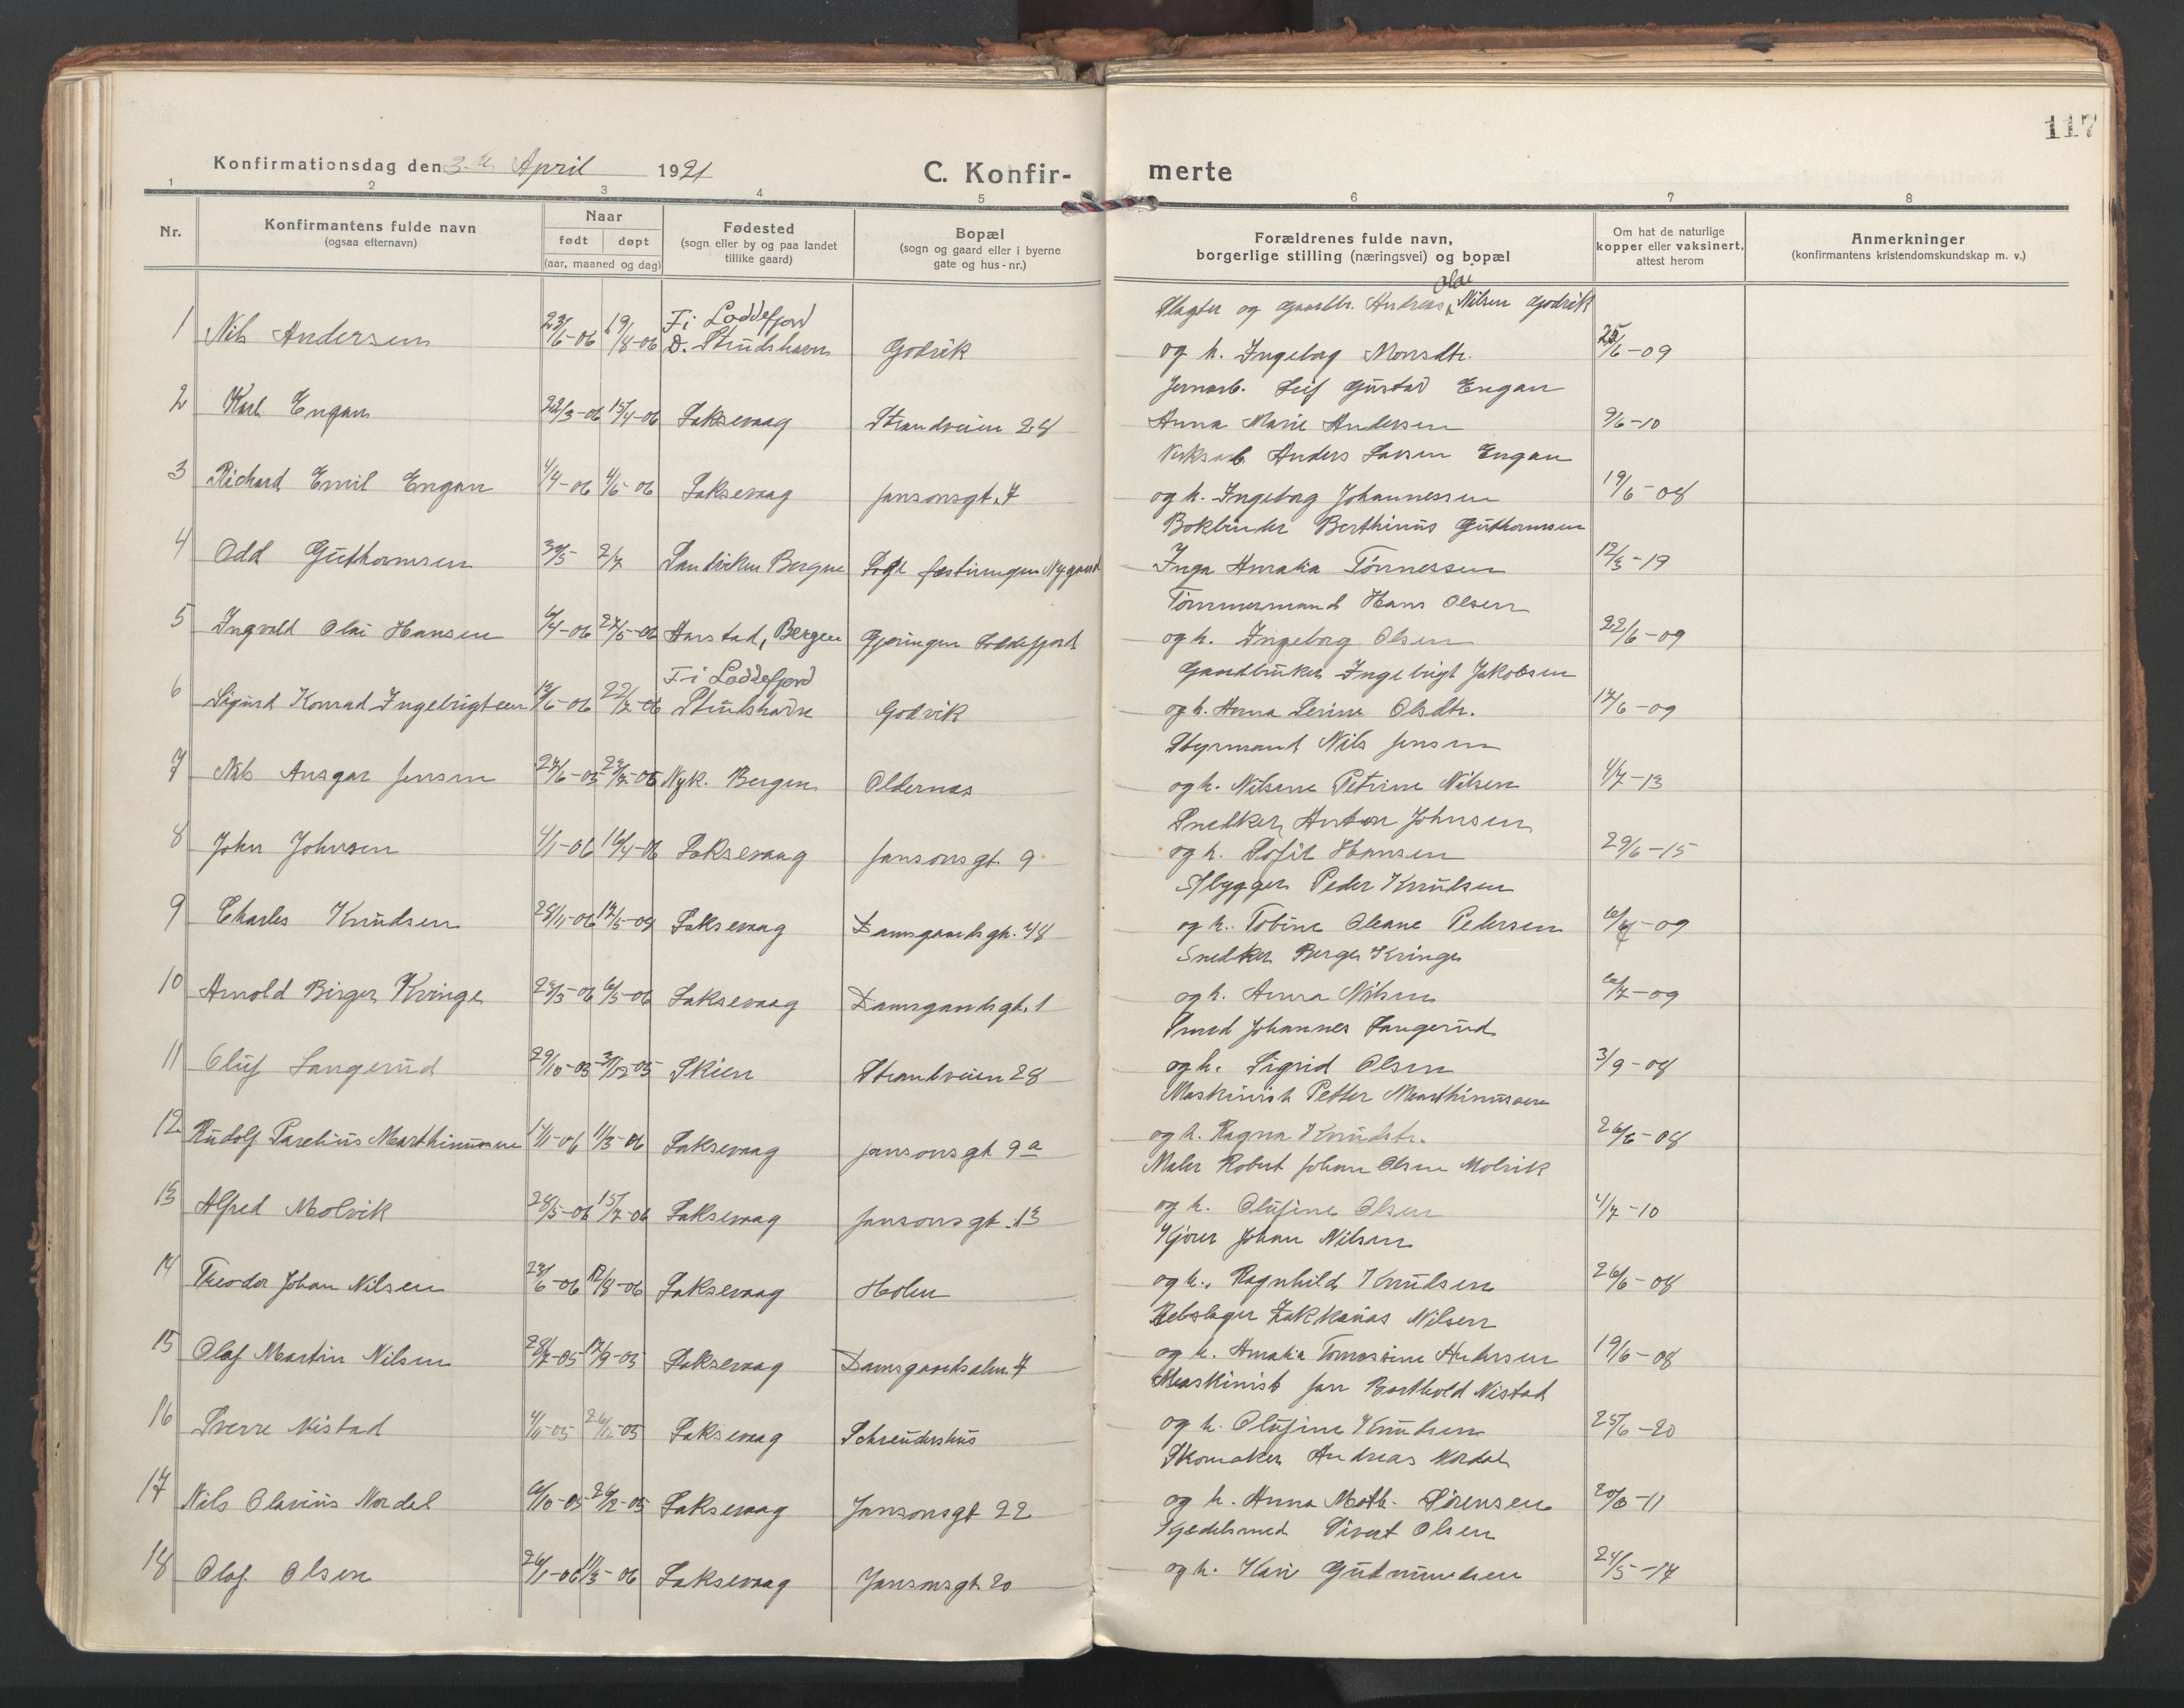 117
Konfirmationsdag den 3-de April 1921
C. Konfir- merte
1 2 3 4 5 6 7 8
Nr.
Konfirmantens fulde navn
(ogsaa efternavn)
Naar
født døpt
(aar, maaned og dag)
Fødested
(sogn eller by og paa landet
tillike gaard)
Bopæl
(sogn og gaard eller i byerne
gate og hus-nr.)
Forældrenes fulde navn,
borgerlige stilling (næringsvei) og bopæl
Om hat de naturlige
kopper eller vaksinert,
attest herom
Anmerkninger
(konfirmantens kristendomskundskap m. v.)
Olai
Slagter og gaardbr. Andreas Nilsen Godvik
1 Nils Andersen 23/6-06 19/8-06 F i Loddefjord D. Strudshavn Godvik og h. Ingeborg Monsdtr. 25/6-09
Jernarb. Leif Gustav Engan
2 Karl Engan 22/3-06 15/4-06 Laksevaag Strandveien 28 Anna Marie Andersen 9/6-10
Verksarb. Anders Larsen Engan
3 Richard Emil Engan 4/4-06 4/6-06 Laksevaag Jansonsgt. 7 og h. Ingeborg Johannessen 19/6-08
Bokbinder Berthinius Guthormsen
4 Odd Guthormsen 30/5- 2/7 Sandviken Bergen festningen Nygaard Inga Amalia Tønnessen 12/3-19
Tømmermand Hans Olsen
5 Ingvald Olai Hansen 6/4-06 27/5-06 Aarstad, Bergen Gjøringen Loddefjord og h. Ingeborg Olsen 22/6-09
Gaardbruker Ingebrigt Jakobsen
6 Sigurd Konrad Ingebrigtsen 13/6-06 22/7-06 F i Loddefjord Strudshavn Godvik og h. Anna Serine Olsdtr. 17/6-09
Styrmand Nils Jensen
7 Nils Ansgar Jensen 27/6-05 23/7-05 Nyk. Bergen Oldernes og h. Nilsine Petrine Nilsen 4/7-13
Snedker Anton Johnsen
8 John Johnsen 4/1-06 16/4-06 Laksevaag Jansonsgt. 9 og h. Sofie Hansen 29/6-15
Peder Knudsen
9 Charles Knudsen 28/11-06 17/5-09 Laksevaag Damsgaardsgt. 48 og h. Tobine Oleane Pedersen -09
Snedker Berge Kvinge
10 Arnold Birger Kvinge 23/3-06 6/5-06 Laksevaag Damsgaardsgt. 1 og h. Anna Nilsen 6/7-09
Smed Johannes Langerud
11 Oluf Langerud 29/10-05 31/12-05 Skien Strandveien 28 og h. Sigrid Olsen 3/9-08
Maskinist Petter Marthinussen
12 Rudolf Parelius Marthinussen 1/1-06 11/3-06 Laksevaag Jansonsgt 9a og h. Ragna Knudsdtr. 26/6-08
Maler Robert Johan Olsen Molvik
13 Alfred Molvik 28/5-06 15/7-06 Laksevaag Jansonsgt. 13 og h. Olufine Olsen 4/7-10
Kjører Johan Nilsen
14 Theodor Johan Nilsen 23/6-06 12/8-06 Laksevaag Holen og h. Ragnhild Knudsen 26/6-08
Rebslager Zakkarias Nilsen
15 Olaf Martin Nilsen 28/7-05 17/9-05 Laksevaag Damsgaardsalm. 7 og h. Amalia Tomasine Andersen 19/6-08
Maskinist Jan Barthold Nistad
16 Sverre Nistad 4/11-05 26/12-05 Laksevaag Schreudershus og h. Olufine Knudsen 25/6-20
Skomaker Andreas Nordal
17 Nils Olavius Nordal 6/10-05 26/12-05 Laksevaag Jansonsgt 22 og h. Anna Math. Sörensen 20/6-11
Kjedelsmed Sivert Olsen
18 Olaf Olsen 26/1-06 11/3-06 Laksevaag Jansonsgt. 20 og h. Kari Gudmundsen 24/5-17